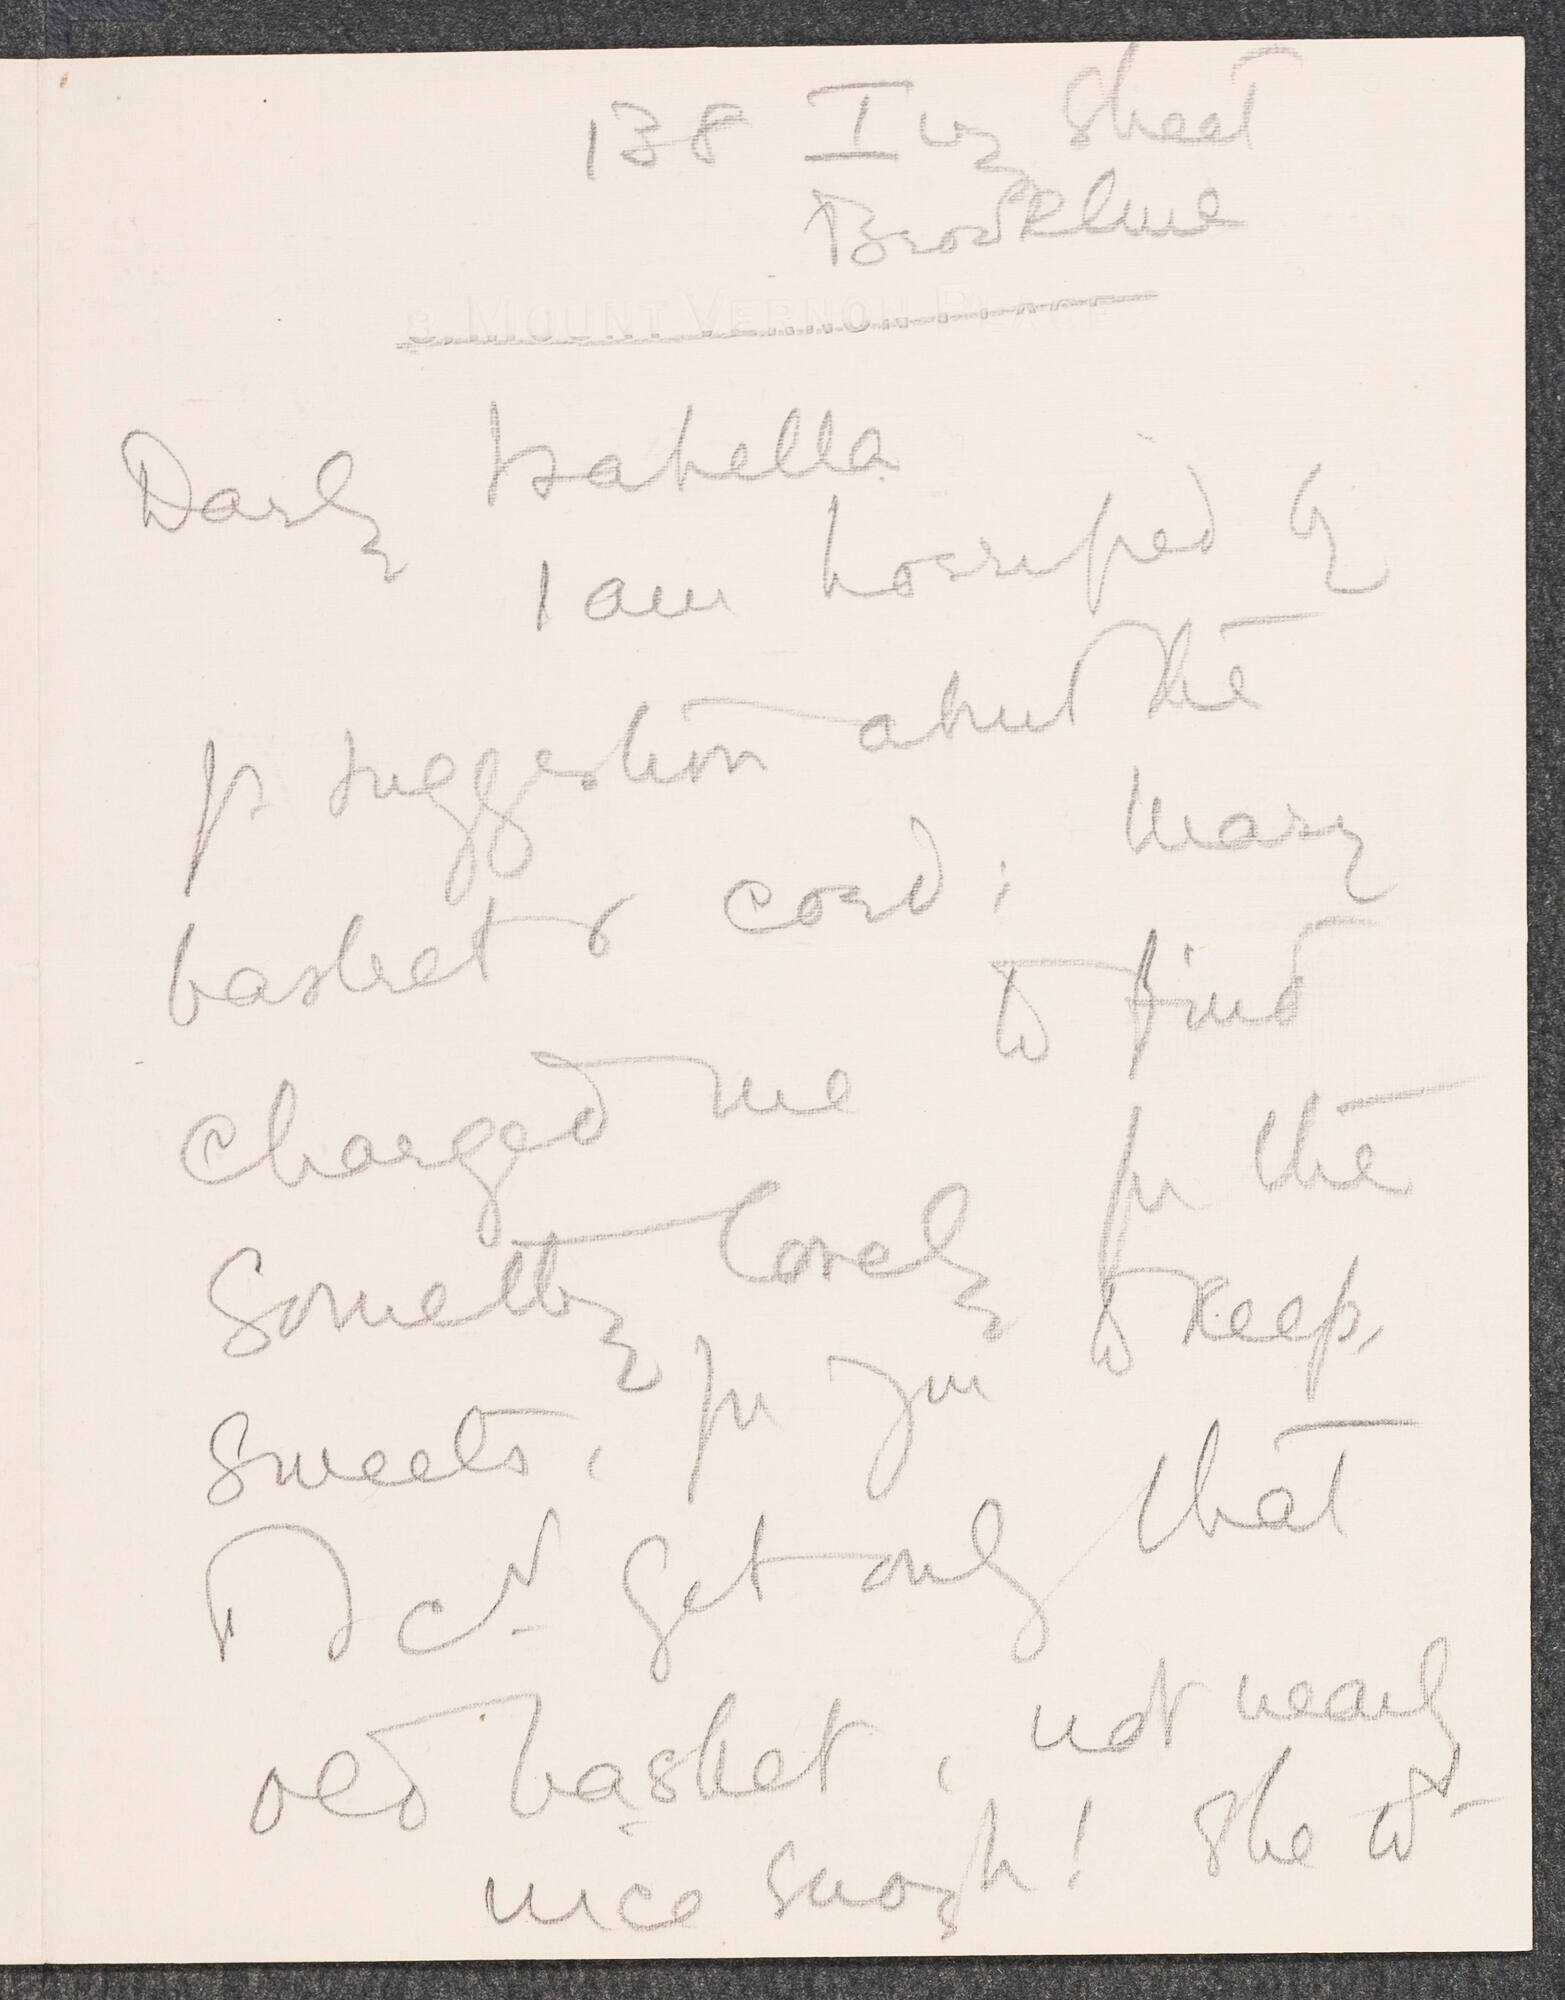 138 Ivy Street
Brookline
8. MOUNT VERNON PLACE
Darly Isabella
I am horrified by
yr suggestion about the
basket & cord; Mary
charged me to find
something lovely for the
sweets, for you to keep,
I cd get only that
old basket, not nearly
nice enough! She wd